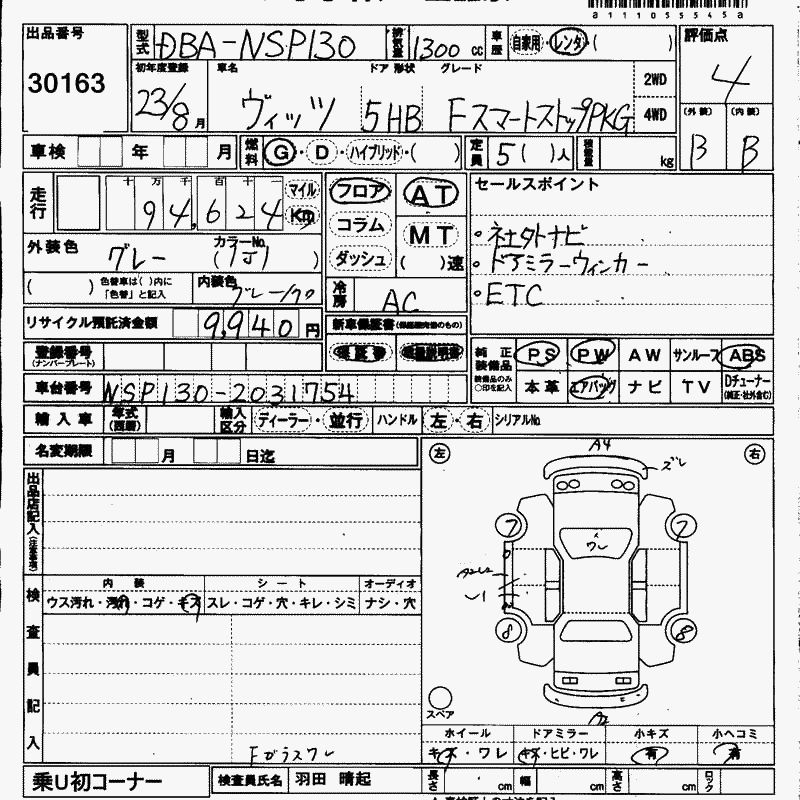 a111055545a
出品番号 30163 型式 DBA-NSP130 排気量 1300cc 車歴 自家用・レンタ・( ) 評価点 4
初年度登録 23/8月 車名 ヴィッツ ドア 形状 5HB グレード FスマートストップPKG 2WD 4WD (外装) B (内装) B
車検 年 月 燃料 G・D・ハイブリッド・( ) 定員 5( )人 積載量 kg
走行 十万千百十一 94,624 マイル Km フロア コラム ダッシュ AT MT ( )速 セールスポイント
外装色 グレー カラーNo. (1J1) ・社外ナビ
( ) 色替車は( )内に「色替」と記入 内装色 グレー/クロ 冷房 AC ・ドアミラーウィンカー
・ETC
リサイクル預託済金額 9,940円 新車保証書(保証継続後のもの)
登録番号(ナンバープレート) 保証書 取扱説明書 純正装備品 PS PW AW サンルーフ ABS
車台番号 NSP130-2031754 装備品のみ○印を記入 本革 エアバッグ ナビ TV Dチューナー(純正・社外含む)
輸入車 年式(西暦) 輸入区分 ディーラー・並行 ハンドル 左・右 シリアルNo.
名変期限 月 日迄 左 右
A4
ズレ
出品店記入(注意事項)
7 7
ワレ
8 8
検査員記入 内装 シート オーディオ
ウス汚れ・汚れ・コゲ・キズ スレ・コゲ・穴・キレ・シミ ナシ・穴
スペア
A2
Fガラスワレ ホイール ドアミラー 小キズ 小ヘコミ
キズ・ワレ キズ・ヒビ・ワレ 有 有
乗U初コーナー 検査員氏名 羽田 晴起 長さ cm 幅 cm 高さ cm ロック